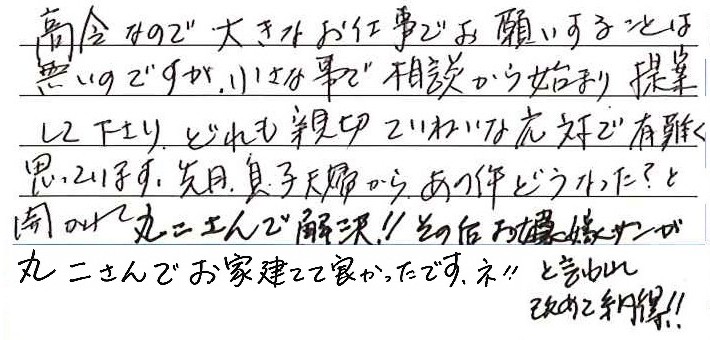 高令なので大きなお仕事でお願いすることは
悪いのですが、小さな事で相談から始まり提案
して下さり、どれも親切ていねいな応対で有難く
思っています。先月、息子夫婦からあの件どうなった?と
聞かれて丸二さんで解決!!その后お嫁サンが
丸二さんでお家建てて良かったです、ネ!!と言われ
改めて納得!!